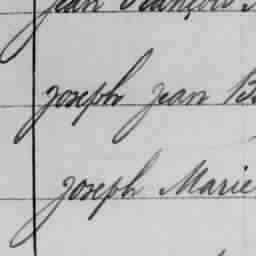 Jean François
Joseph Jean B
Joseph Marie